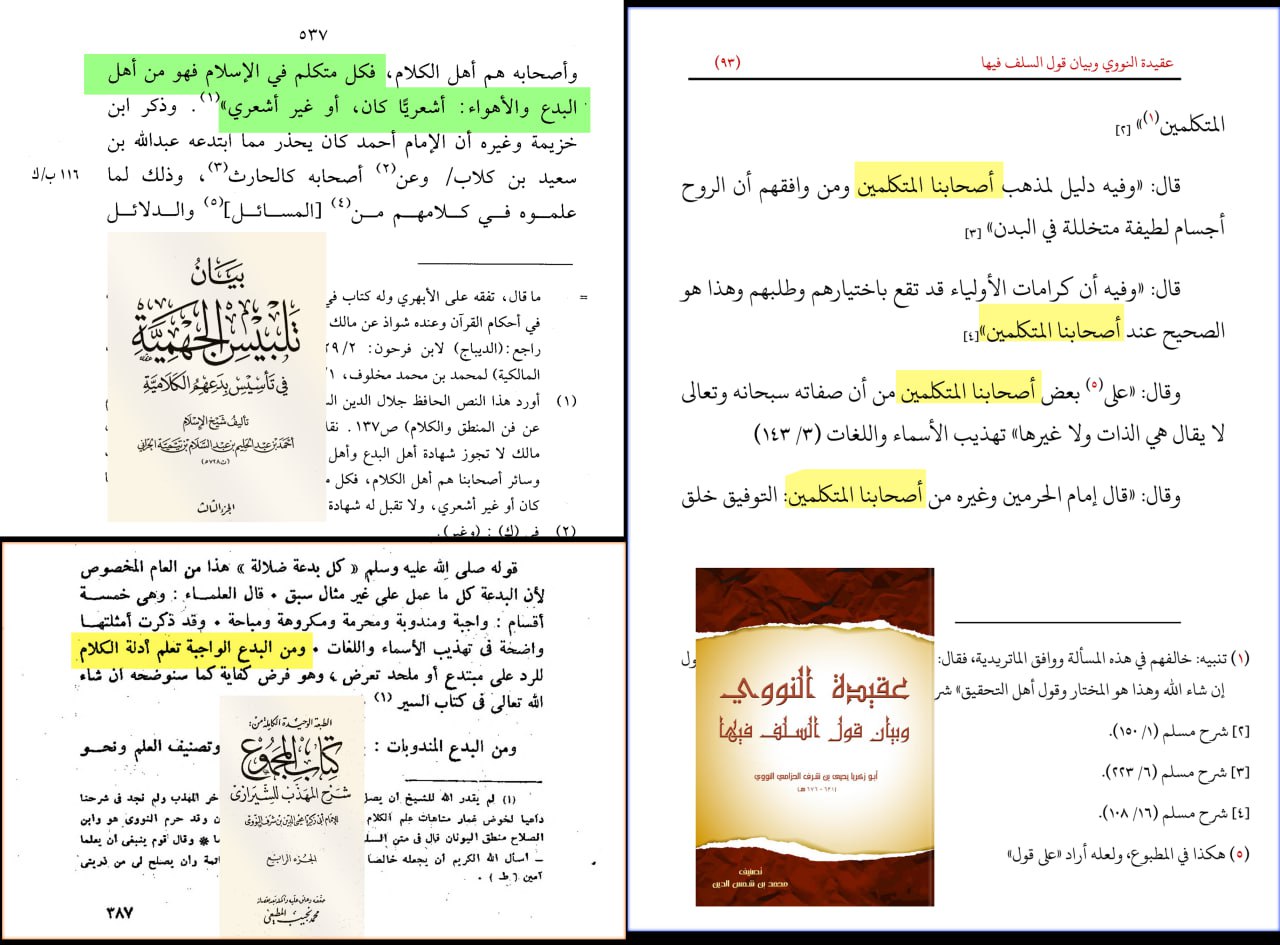 ٥٣٧
وأصحابه هم أهل الكلام، فكل متكلم في الإسلام فهو من أهل
البدع والأهواء: أشعريًّا كان، أو غير أشعري»(١). وذكر ابن
خزيمة وغيره أن الإمام أحمد كان يحذر مما ابتدعه عبدالله بن
سعيد بن كلاب/ وعن(٢) أصحابه كالحارث(٣)، وذلك لما
١١٦ ب/ك
علموه في كلامهم من(٤) [المسائل](٥) والدلائل
= ما قال، تفقه على الأبهري وله كتاب في
في أحكام القرآن وعنده شواذ عن مالك
راجع: (الديباج) لابن فرحون: ٢٩/٢
المالكية) لمحمد بن محمد مخلوف، ١/
(١) أورد هذا النص الحافظ جلال الدين
عن فن المنطق والكلام) ص١٣٧. نقا
مالك لا تجوز شهادة أهل البدع وأهل
وسائر أصحابنا هم أهل الكلام، فكل
كان أو غير أشعري، ولا تقبل له شهادة
(٢) في (ك): (وغير).
بيان
تلبيس الجهمية
في تأسيس بدعهم الكلامية
تأليف شيخ الإسلام
أحمد بن عبد الحليم بن عبد السلام بن تيمية الحراني
(ت٧٢٨هـ)
الجزء الثالث
قوله صلى الله عليه وسلم « كل بدعة ضلالة » هذا من العام المخصوص
لأن البدعة كل ما عمل على غير مثال سبق • قال العلماء : وهى خمسة
أقسام : واجبة ومندوبة ومحرمة ومكروهة ومباحة • وقد ذكرت أمثلتها
واضحة فى تهذيب الأسماء واللغات • ومن البدع الواجبة تعلم أدلة الكلام
للرد على مبتدع أو ملحد تعرض ، وهو فرض كفاية كما سنوضحه ان شاء
الله تعالى فى كتاب السير (١)
ومن البدع المندوبات : وتصنيف العلم ونحو
(١) لم يقدر الله للشيخ أن يصل خر المهذب ولم نجد فى شرحنا
داعيا لخوض غمار متاهات علم الكلام ن وقد حرم النووى هو وابن
الصلاح منطق اليونان قال فى متن السلم وقال قوم ينبغى أن يعلما
– أسأل الله الكريم أن يجعله خالصا وأن يصلح لى من ذريتى
آمين ( ط ) .
الطبعة الوحيدة الكاملة من:
كتاب المجموع
شرح المهذب للشيرازى
للإمام أبى زكريا محيى الدين بن شرف النووى
الجزء الرابع
حققه وعلق عليه وأكمله بعد نقصانه
محمد نجيب المطيعي
٣٨٧
عقيدة النووي وبيان قول السلف فيها (٩٣)
المتكلمين(١)» [٢]
قال: «وفيه دليل لمذهب أصحابنا المتكلمين ومن وافقهم أن الروح
أجسام لطيفة متخللة في البدن» [٣]
قال: «وفيه أن كرامات الأولياء قد تقع باختيارهم وطلبهم وهذا هو
الصحيح عند أصحابنا المتكلمين»[٤]
وقال: «على(٥) بعض أصحابنا المتكلمين من أن صفاته سبحانه وتعالى
لا يقال هي الذات ولا غيرها» تهذيب الأسماء واللغات (٣/ ١٤٣)
وقال: «قال إمام الحرمين وغيره من أصحابنا المتكلمين: التوفيق خلق
(١) تنبيه: خالفهم في هذه المسألة ووافق الماتريدية، فقال: ول
إن شاء الله وهذا هو المختار وقول أهل التحقيق» شر
[٢] شرح مسلم (١/ ١٥٠).
[٣] شرح مسلم (٦/ ٢٢٣).
[٤] شرح مسلم (١٦/ ١٠٨).
(٥) هكذا في المطبوع، ولعله أراد «على قول»
عقيدة النووي
وبيان قول السلف فيها
أبو زكريا يحيى بن شرف الحزامي النووي
(٦٣١-٦٧٦هـ)
تصنيف
محمد بن شمس الدين